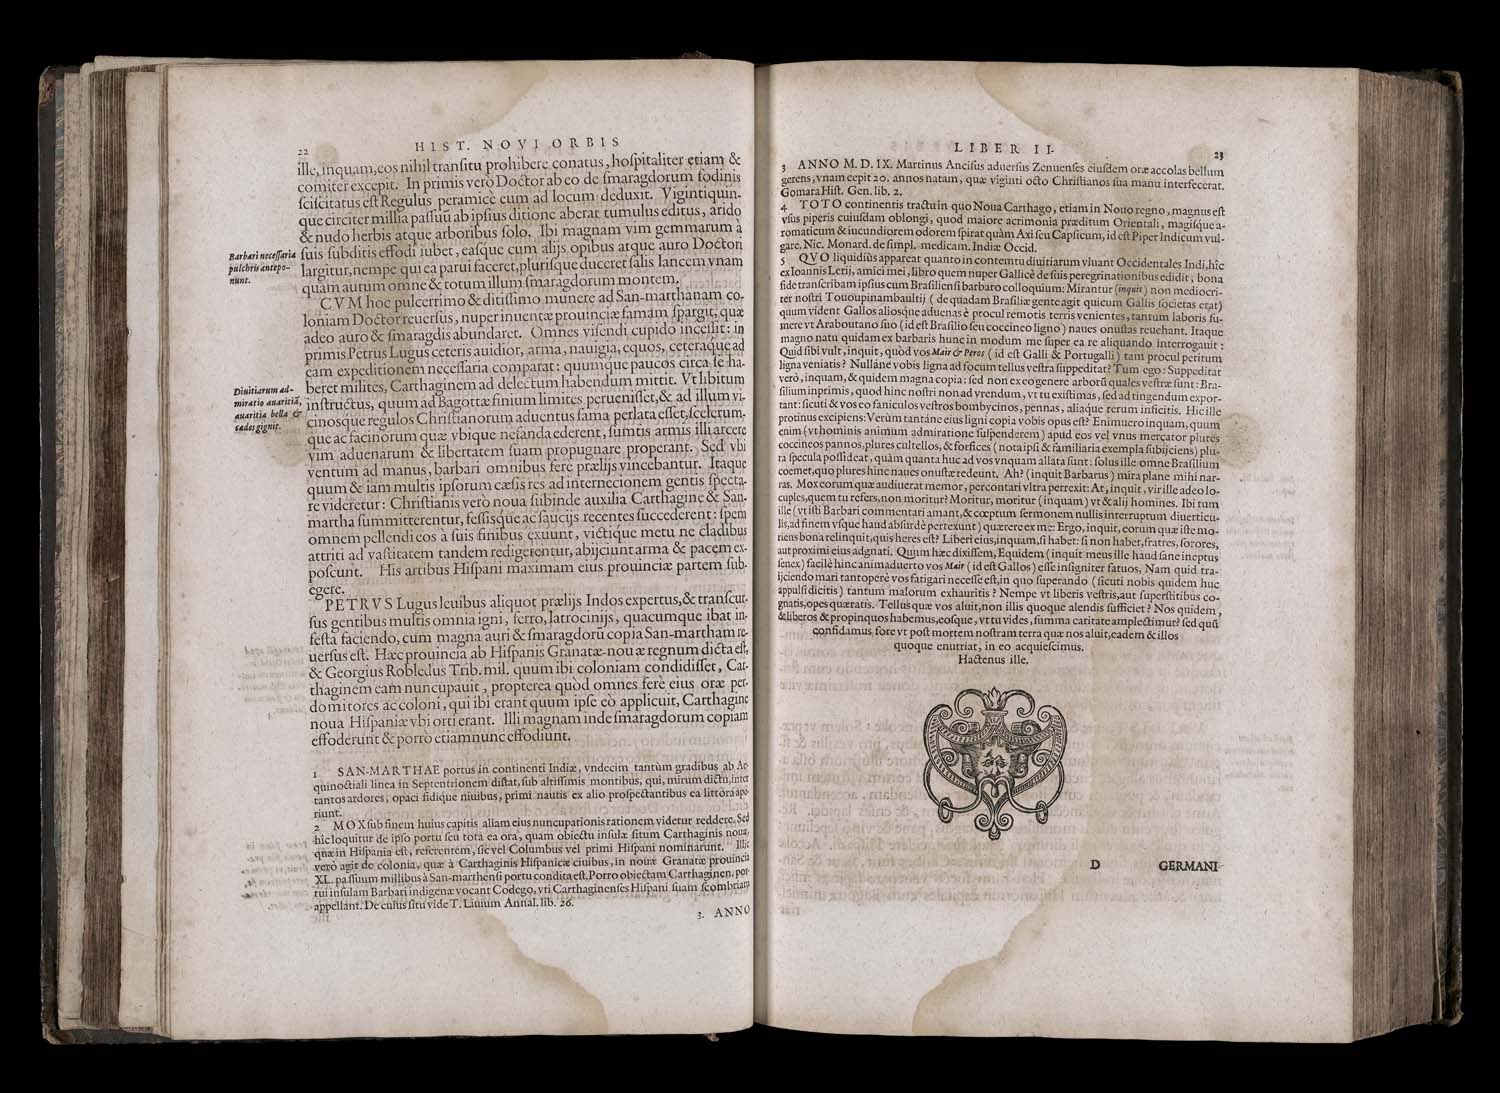 22
HIST. NOVI ORBIS
ille, inquam, eos nihil transitu prohibere conatus, hospitaliter etiam &
comiter excepit. In primis verò Doctor ab eo de smaragdorum fodinis
sciscitatus est Regulus peramicè eum ad locum deduxit. Vigintiquin-
que circiter millia passuũ ab ipsius ditione aberat tumulus editus, arido
& nudo herbis atque arboribus solo. Ibi magnam vim gemmarum à
suis subditis effodi iubet, easque cum alijs opibus atque auro Doctori
largitur, nempe qui ea parui faceret, plurisque duceret salis lancem vnam
quàm aurum omne & totum illum smaragdorum montem.
Barbari necessaria
pulchris antepo-
nunt.
CVM hoc pulcerrimo & ditissimo munere ad San-marthanam co-
loniam Doctor reuersus, nuper inuentæ prouinciæ famam spargit, quæ
adeo auro & smaragdis abundaret. Omnes visendi cupido incessit: in
primis Petrus Lugus ceteris auidior, arma, nauigia, equos, ceteraque ad
eam expeditionem necessaria comparat: quumque paucos circa se ha-
beret milites, Carthaginem ad delectum habendum mittit. Vt libitum
instructus, quum ad Bagottæ finium limites peruenisset, & ad illum vi-
cinosque regulos Christianorum aduentus fama perlata esset, scelerum-
que ac facinorum quæ vbique nefanda ederent, sumtis armis illi arcere
vim aduenarum & libertatem suam propugnare properant. Sed vbi
ventum ad manus, barbari omnibus fere prælijs vincebantur. Itaque
quum & iam multis ipsorum cæsis res ad internecionem gentis specta-
re videretur: Christianis verò noua subinde auxilia Carthagine & San-
martha summitterentur, fessisque ac saucijs recentes succederent: spem
omnem pellendi eos à suis finibus exuunt, victique metu ne cladibus
attriti ad vastitatem tandem redigerentur, abijciunt arma & pacem ex-
poscunt. His artibus Hispani maximam eius prouinciæ partem sub-
egere.
Diuitiarum ad-
miratio auaritiã,
auaritia bella &
cædes gignit.
PETRVS Lugus leuibus aliquot prælijs Indos expertus, & transcur-
sus gentibus multis omnia igni, ferro, latrocinijs, quacumque ibat in-
festa faciendo, cum magna auri & smaragdorũ copia San-martham re-
uersus est. Hæc prouincia ab Hispanis Granatæ-nouæ regnum dicta est,
& Georgius Robledus Trib. mil. quum ibi coloniam condidisset, Car-
thaginem eam nuncupauit, propterea quòd omnes ferè eius oræ per-
domitores ac coloni, qui ibi erant quum ipse eò applicuit, Carthagine
noua Hispaniæ vbi orti erant. Illi magnam inde smaragdorum copiam
effoderunt & porrò etiamnunc effodiunt.
1 SAN-MARTHAE portus in continenti Indiæ, vndecim tantùm gradibus ab Æ-
quinoctiali linea in Septentrionem distat, sub altissimis montibus, qui, mirum dictu, inter
tantos ardores, opaci fidique niuibus, primi nautis ex alto prospectantibus ea littora ape-
riunt.
2 MOX sub finem huius capitis aliam eius nuncupationis rationem videtur reddere. Sed
hîc loquitur de ipso portu seu tota ea ora, quam obiectu insulæ situm Carthaginis nouæ,
quæ in Hispania est, referentem, sic vel Columbus vel primi Hispani nominarunt. Illîc
verò agit de colonia, quæ à Carthaginis Hispanicæ ciuibus, in nouæ Granatæ prouincia
XL. passuum millibus à San-marthensi portu condita est. Porro obiectam Carthaginen. por-
tui insulam Barbari indigenæ vocant Codego, vti Carthaginenses Hispani suam scombriam
appellant. De cuius situ vide T. Liuium Annal. lib. 26.
3. ANNO
LIBER II.
23
3 ANNO M. D. IX. Martinus Ancisus aduersus Zenuenses eiusdem oræ accolas bellum
gerens, vnam cepit 20. annos natam, quæ viginti octo Christianos sua manu interfecerat.
Gomara Hist. Gen. lib. 2.
4 TOTO continentis tractu in quo Noua Carthago, etiam in Nouo regno, magnus est
vsus piperis cuiusdam oblongi, quod maiore acrimonia præditum Orientali, magisque a-
romaticum & iucundiorem odorem spirat quàm Axi seu Capsicum, id est Piper Indicum vul-
gare. Nic. Monard. de simpl. medicam. Indiæ Occid.
5 QVO liquidiùs appareat quanto in contemtu diuitiarum viuant Occidentales Indi, hîc
ex Ioannis Lerij, amici mei, libro quem nuper Gallicè de suis peregrinationibus edidit, bona
fide transcribam ipsius cum Brasiliensi barbaro colloquium: Mirantur (inquit) non mediocri-
ter nostri Tououpinambaultij (de quadam Brasiliæ gente agit quicum Gallis societas erat)
quum vident Gallos aliosque aduenas è procul remotis terris venientes, tantum laboris su-
mere vt Araboutano suo (id est Brasilio seu coccineo ligno) naues onustas reuehant. Itaque
magno natu quidam ex barbaris hunc in modum me super ea re aliquando interrogauit:
Quid sibi vult, inquit, quòd vos Mair & Peros (id est Galli & Portugalli) tam procul petitum
ligna veniatis? Nulláne vobis ligna ad focum tellus vestra suppeditat? Tum ego: Suppeditat
verò, inquam, & quidem magna copia: sed non ex eo genere arborũ quales vestræ sunt: Bra-
silium inprimis, quod hinc nostri non ad vrendum, vt tu existimas, sed ad tingendum expor-
tant: sicuti & vos eo faniculos vestros bombycinos, pennas, aliaque rerum inficitis. Hic ille
protinus excipiens: Verùm tantáne eius ligni copia vobis opus est? Enimuero inquam, quum
enim (vt hominis animum admiratione suspenderem) apud eos vel vnus mercator plures
coccineos pannos, plures cultellos, & forfices (nota ipsi & familiaria exempla subijciens) plu-
ra specula possideat, quàm quanta huc ad vos vnquam allata sunt: solus ille omne Brasilium
coemet, quo plures hinc naues onustæ redeunt. Ah? (inquit Barbarus) mira plane mihi nar-
ras. Mox eorum quæ audiuerat memor, percontari vltra perrexit: At, inquit, vir ille adeo lo-
cuples, quem tu refers, non moritur? Moritur, moritur (inquam) vt & alij homines. Ibi tum
ille (vt isti Barbari commentari amant, & cœptum sermonem nullis interruptum diuerticu-
lis, ad finem vsque haud absurdè pertexunt) quærere ex me: Ergo, inquit, eorum quæ iste mo-
riens bona relinquit, quis heres est? Liberi eius, inquam, si habet: si non habet, fratres, sorores,
aut proximi eius adgnati. Quum hæc dixissem, Equidem (inquit meus ille haud sane ineptus
senex) facilè hinc animaduerto vos Mair (id est Gallos) esse insigniter fatuos, Nam quid tra-
ijciendo mari tantoperè vos fatigari necesse est, in quo superando (sicuti nobis quidem huc
appulsi dicitis) tantum malorum exhauritis? Nempe vt liberis vestris, aut superstitibus co-
gnatis, opes quæratis. Tellus quæ vos aluit, non illis quoque alendis sufficiet? Nos quidem,
& liberos & propinquos habemus, eosque, vt tu vides, summa caritate amplectimur? sed quũ
confidamus fore vt post mortem nostram terra quæ nos aluit, eadem & illos
quoque enutriat, in eo acquiescimus.
Hactenus ille.
D
GERMANI